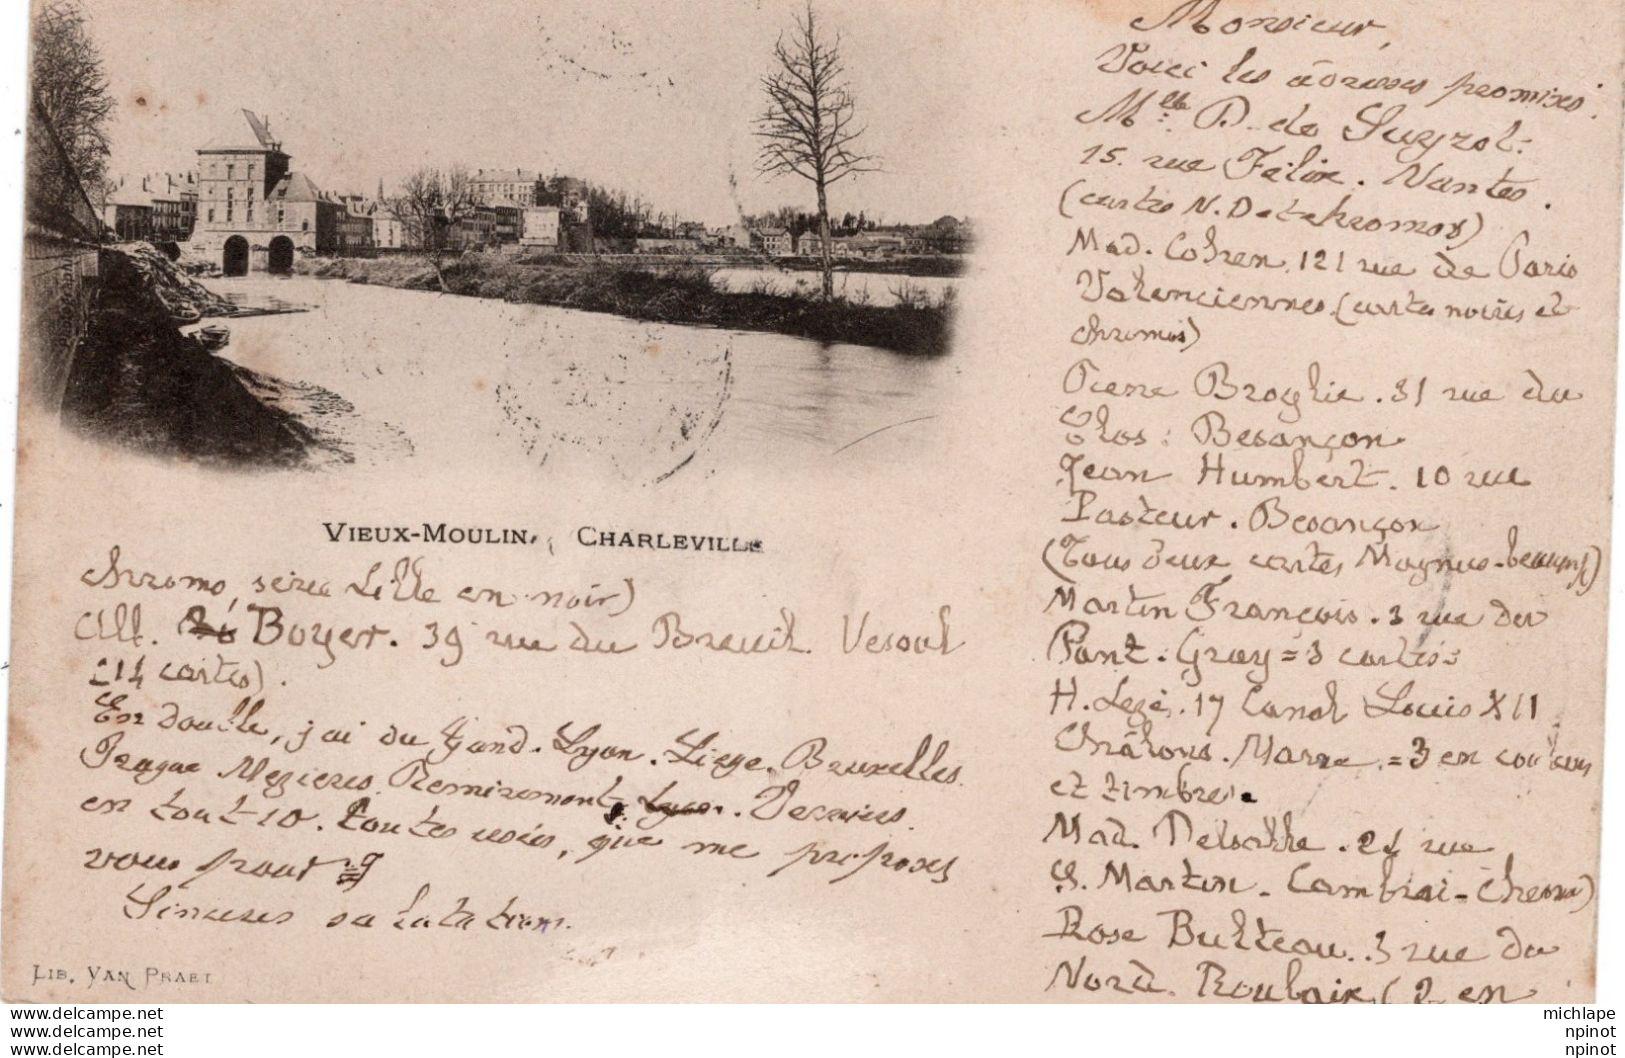 Monsieur,
Voici les adresses promises.
Mlle D. de Sugrol.
15. rue Félix. Nantes.
(cartes N. D et chromos)
Mad. Cohen, 121 rue de Paris
Valenciennes (cartes noires et
chromos)
Pierre Broglie. 31 rue du
Clos: Besançon
Jean Humbert. 10 rue
Pasteur. Besançon
(Tous deux cartes Magnus-
Martin François. 3 rue du
Pont. Gray = 3 cartes
H. Legé. 17 Canal Louis XII
Châlons. Marne = 3 en couleurs
et timbre.
Mad. Delsathe. 21 rue
S. Martin - Cambrai - Chromo)
Rose Bulteau. 3 rue du
Nord. Roubaix (2 en
VIEUX-MOULIN, CHARLEVILLE
chromo, série Lille en noir)
Alb. Boyer. 39 rue du Breuil. Vesoul
(14 cartes).
En double, j'ai du Gand. Lyon. Liège. Bruxelles.
Prague Mezieres. Remiremont. Verviers.
en tout 10. Toutes noires, que me proposez
vous pour
Sincères salutations.
LIB. VAN PRAET
www.delcampe.net
www.delcampe.net
www.delcampe.net
michlape
npinot
npinot